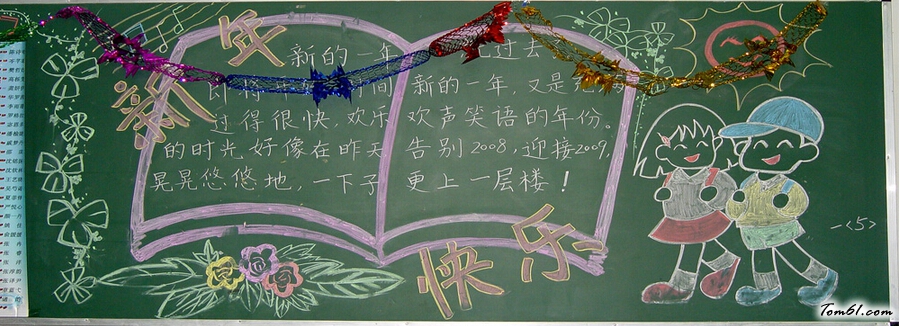 新年
新的一年 过去
时间 新的一年,又是
过得很快,欢乐 欢声笑语的年份。
的时光好像在昨天 告别2008,迎接2009,
晃晃悠悠地,一下子 更上一层楼!
快乐
一<5>
Tom61.com